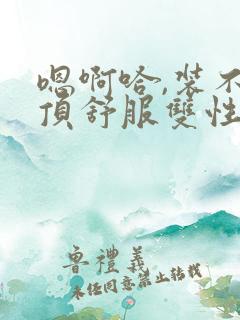 嗯啊哈,裝不
頂舒服雙性
魯禮義
未经同意禁止转载